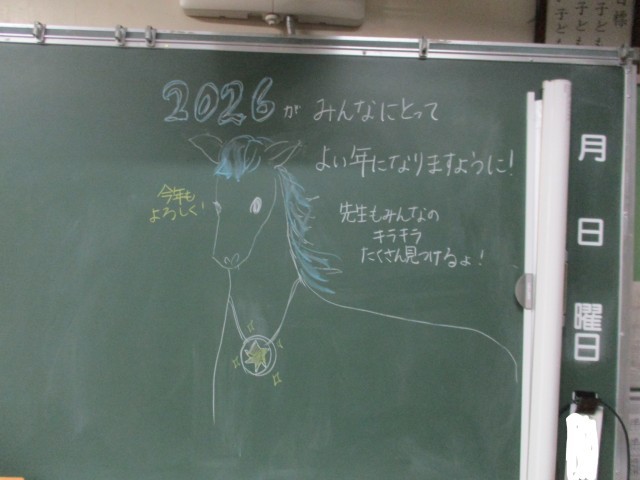 2026が みんなにとって
よい年になりますように！
今年も
よろしく！
先生もみんなの
キラキラ
たくさん見つけるよ！
月
日
曜
日